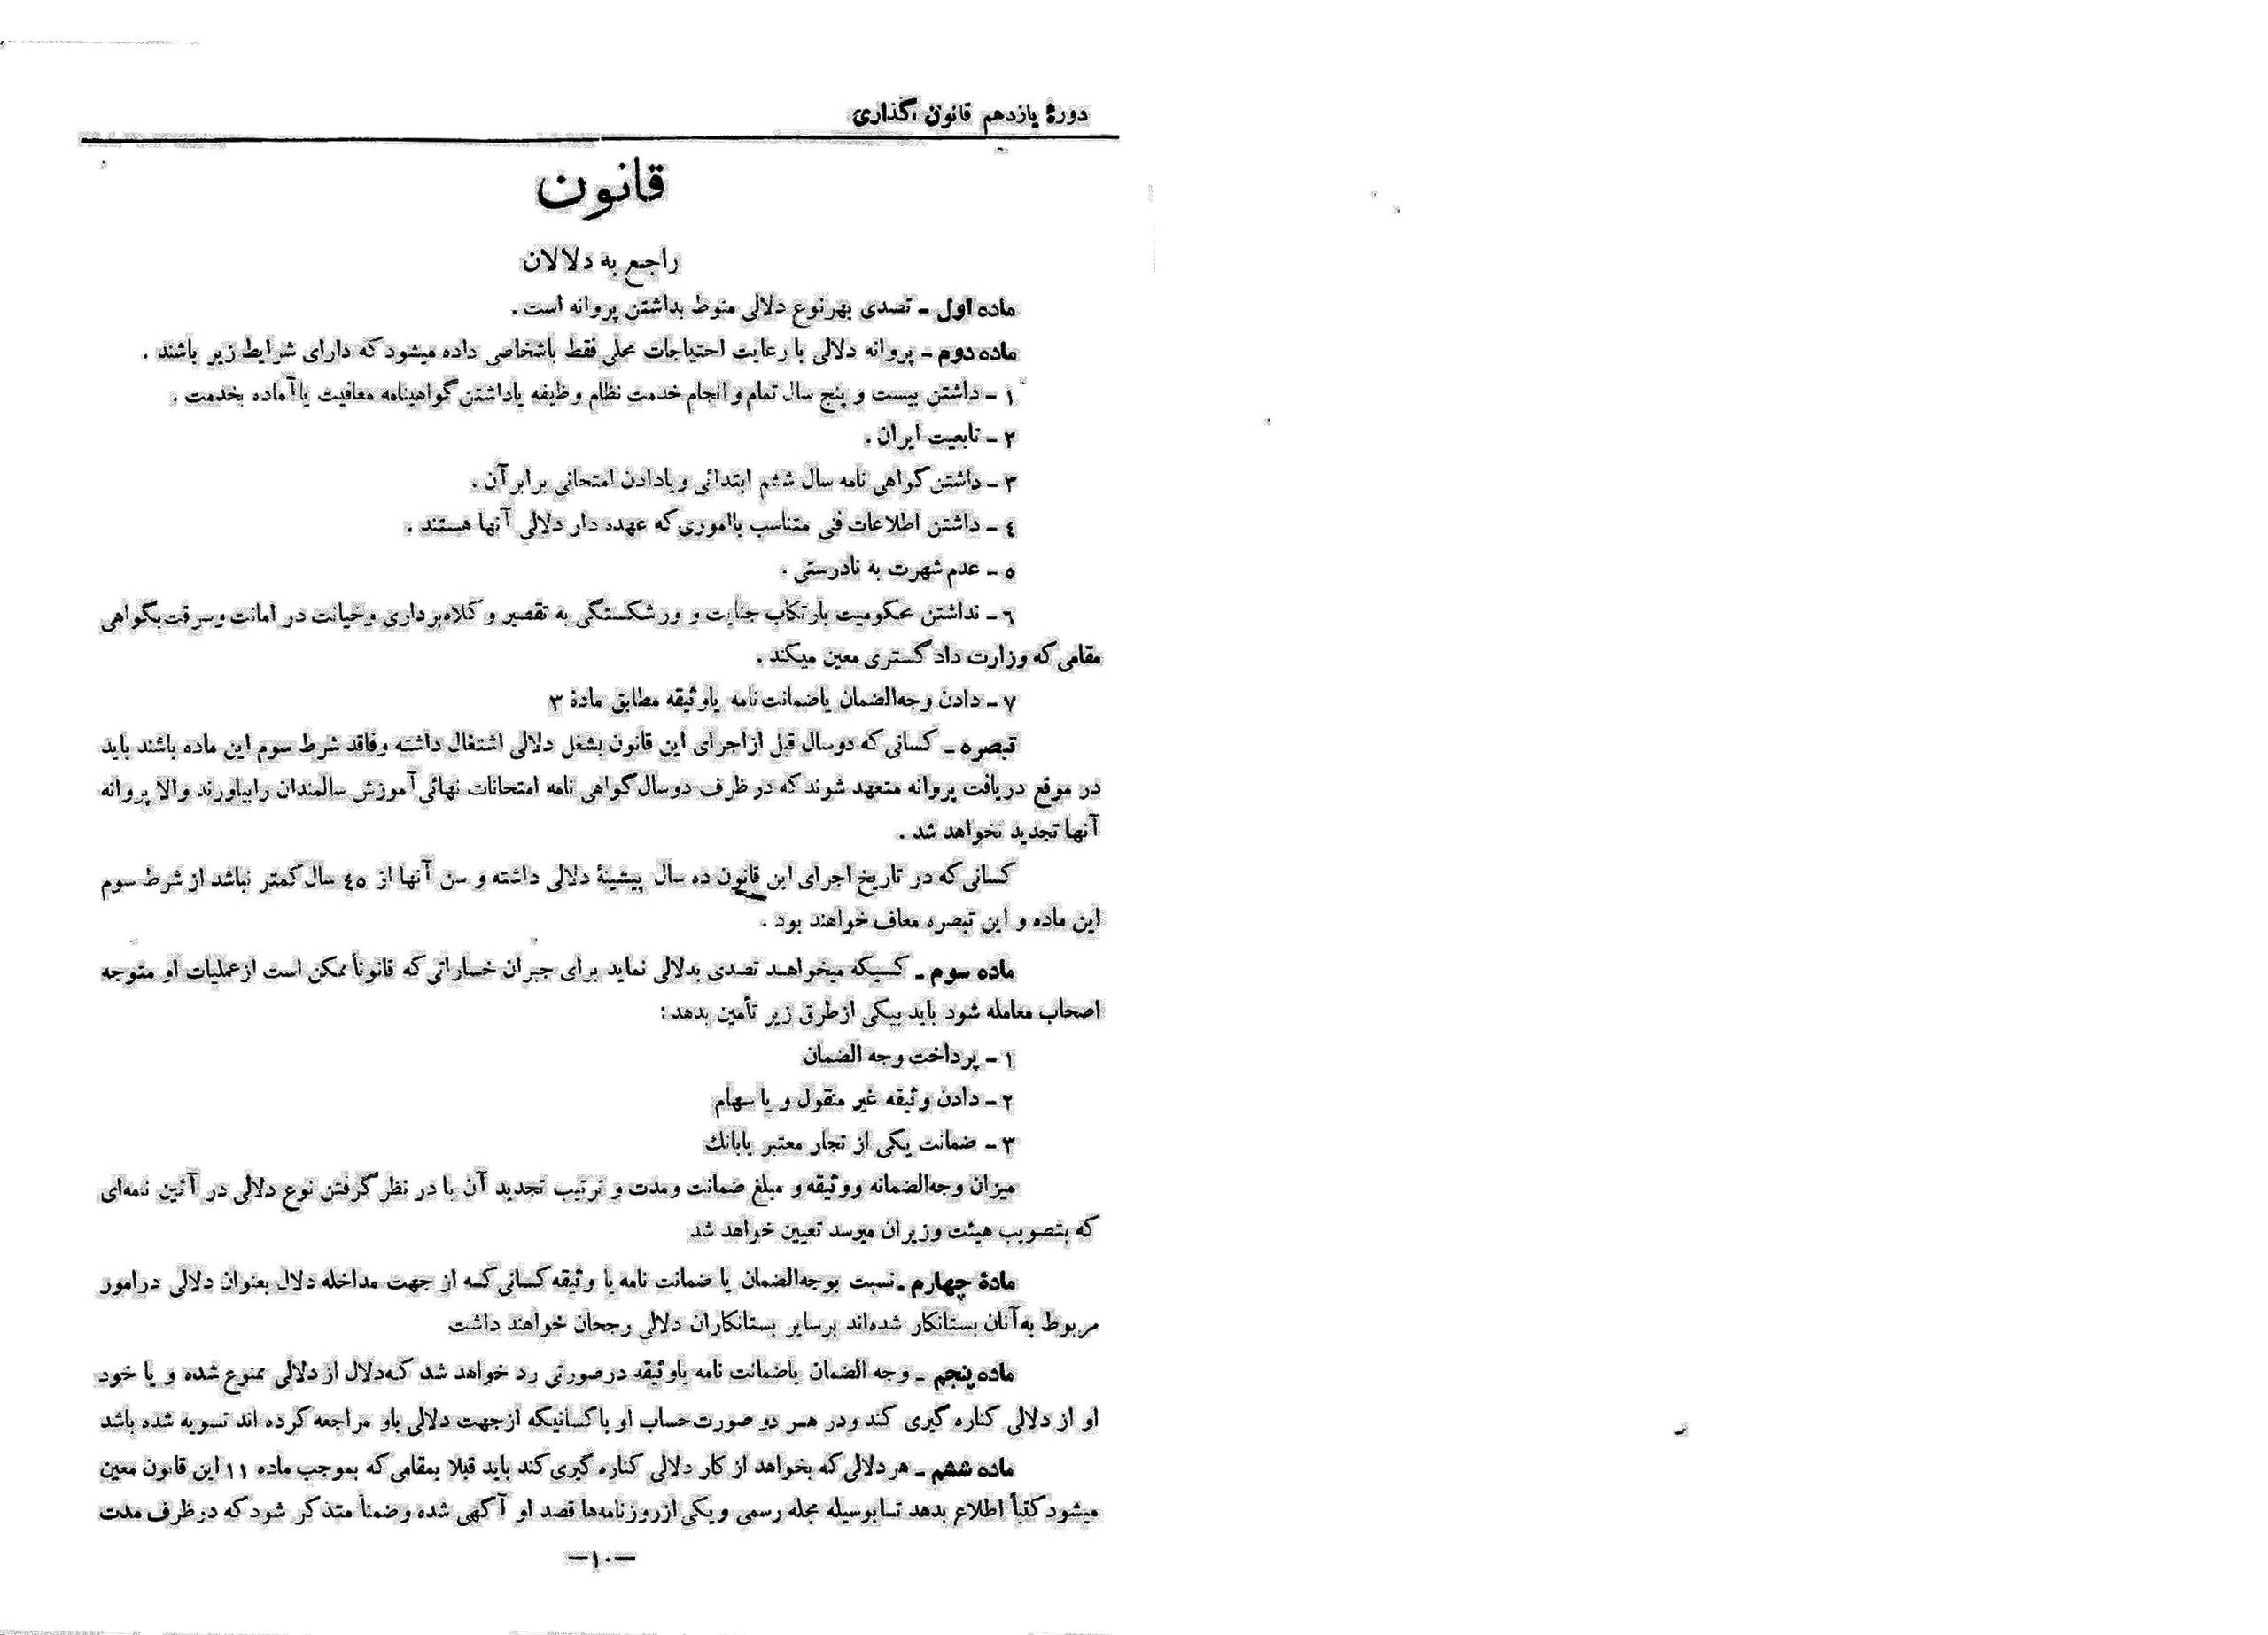 دورهٔ یازدهم قانون گذاری
قانون
راجع به دلالان
ماده اول ـ تصدی بهرنوع دلالی منوط بداشتن پروانه است .
ماده دوم ـ پروانه دلالی با رعایت احتیاجات محلی فقط باشخاصی داده میشود که دارای شرایط زیر باشند .
۱ ـ داشتن بیست و پنج سال تمام و انجام خدمت نظام وظیفه یاداشتن گواهینامه معافیت یا آماده بخدمت .
۲ ـ تابعیت ایران .
۳ ـ داشتن گواهی نامه سال ششم ابتدائی ویادادن امتحانی برابر آن .
٤ ـ داشتن اطلاعات فنی متناسب باموری که عهده دار دلالی آنها هستند .
٥ ـ عدم شهرت به نادرستی .
٦ ـ نداشتن محکومیت بارتکاب جنایت و ورشکستگی به تقصیر و کلاه‌برداری وخیانت در امانت وسرقت بگواهی
مقامی که وزارت دادگستری معین میکند .
۷ ـ دادن وجه‌الضمان یاضمانت نامه یاوثیقه مطابق مادهٔ ۳
تبصره ـ کسانی که دوسال قبل ازاجرای این قانون بشغل دلالی اشتغال داشته وفاقد شرط سوم این ماده باشند باید
در موقع دریافت پروانه متعهد شوند که در ظرف دوسال گواهی نامه امتحانات نهائی آموزش سالمندان رابیاورند والا پروانه
آنها تجدید نخواهد شد .
کسانی که در تاریخ اجرای این قانون ده سال پیشینهٔ دلالی داشته و سن آنها از ٤٥ سال کمتر نباشد از شرط سوم
این ماده و این تبصره معاف خواهند بود .
ماده سوم ـ کسیکه میخواهد تصدی بدلالی نماید برای جبران خساراتی که قانوناً ممکن است ازعملیات او متوجه
اصحاب معامله شود باید بیکی ازطرق زیر تأمین بدهد :
۱ ـ پرداخت وجه الضمان
۲ ـ دادن وثیقه غیر منقول و یا سهام
۳ ـ ضمانت یکی از تجار معتبر یابانك
میزان وجه‌الضمانه ووثیقه و مبلغ ضمانت ومدت و ترتیب تجدید آن با در نظر گرفتن نوع دلالی در آئین نامه‌ای
که بتصویب هیئت وزیران میرسد تعیین خواهد شد
مادهٔ چهارم ـ نسبت بوجه‌الضمان یا ضمانت نامه یا وثیقه کسانی که از جهت مداخله دلال بعنوان دلالی درامور
مربوط به آنان بستانکار شده‌اند برسایر بستانکاران دلالی رجحان خواهند داشت
ماده پنجم ـ وجه الضمان یاضمانت نامه یاوثیقه درصورتی رد خواهد شد که دلال از دلالی ممنوع شده و یا خود
او از دلالی کناره گیری کند ودر هر دو صورت حساب او با کسانیکه ازجهت دلالی باو مراجعه کرده اند تسویه شده باشد
ماده ششم ـ هر دلالی که بخواهد از کار دلالی کناره گیری کند باید قبلا بمقامی که بموجب ماده ۱۱ این قانون معین
میشود کتباً اطلاع بدهد تا بوسیله مجله رسمی و یکی ازروزنامه‌ها قصد او آگهی شده و ضمناً متذکر شود که در ظرف مدت
—۱۰—